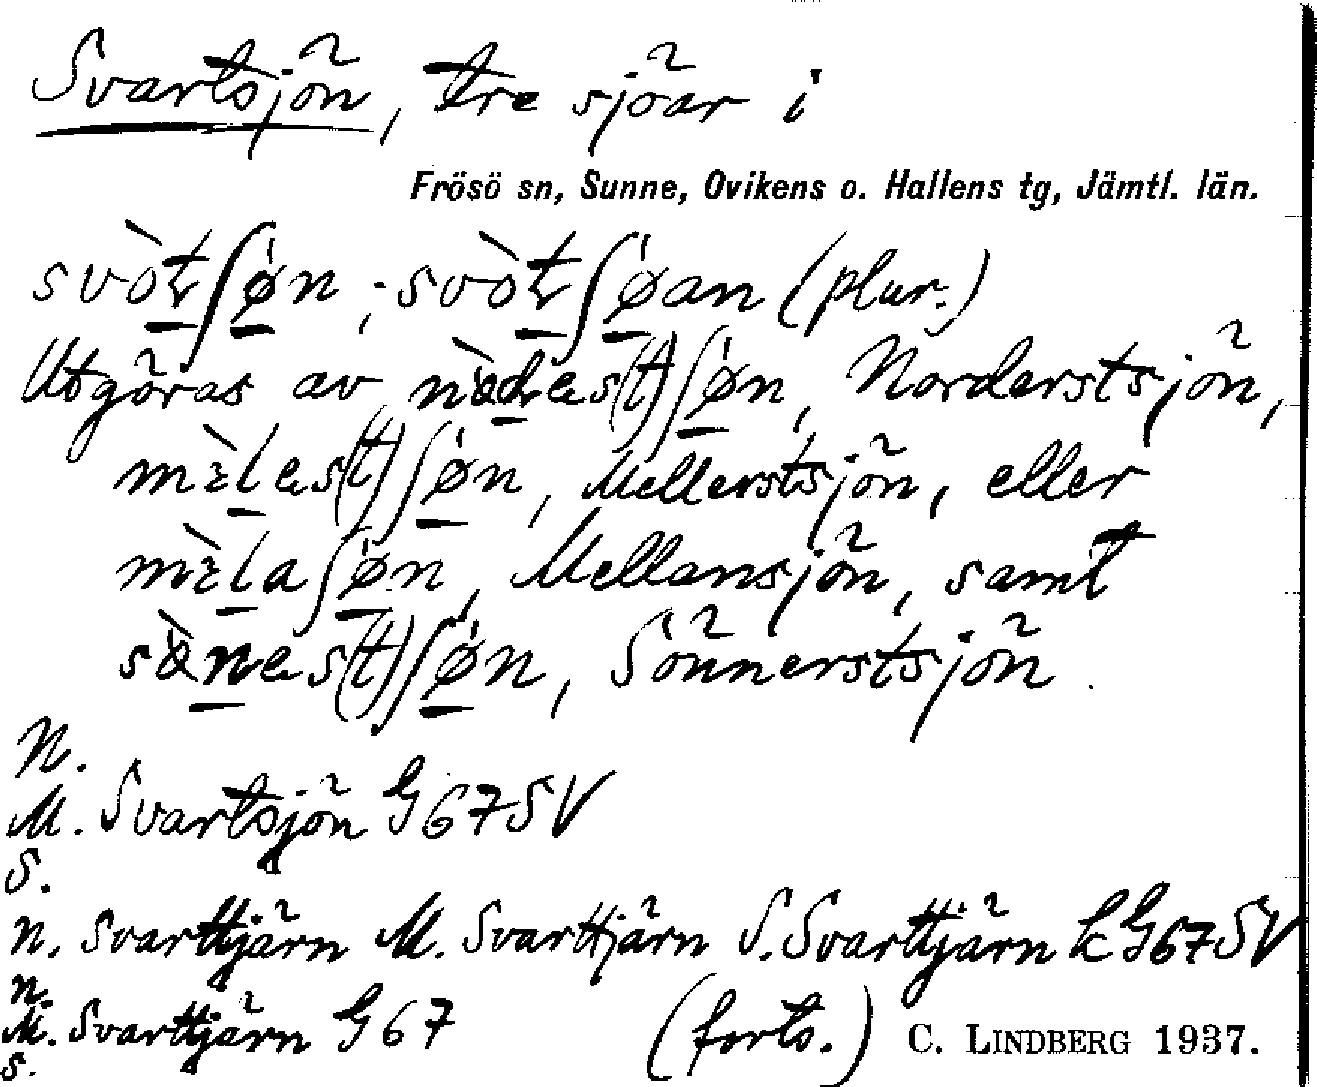 Svartsjön, tre sjöar i
Frösö sn, Sunne, Ovikens o. Hallens tg, Jämtl. län.
svòt̠ʃø̠n ; svòt̠ʃø̠an (plur.)
Utgöras av nǜd̠est(t)ʃø̠n, Norderstsjön,
mɛ̀l̠es(t)ʃø̠n, Mellerstsjön, eller
mɛ̀l̠aʃø̠n, Mellansjön, samt
sæ̀n̠es(t)ʃø̠n, Sönnerstsjön.
N.
M. Svartsjön G67SV
S.
N. Svarttjärn M. Svarttjärn S. Svarttjärn k G67SV
N.
M. Svarttjärn G67
S.
(forts.) C. LINDBERG 1937.